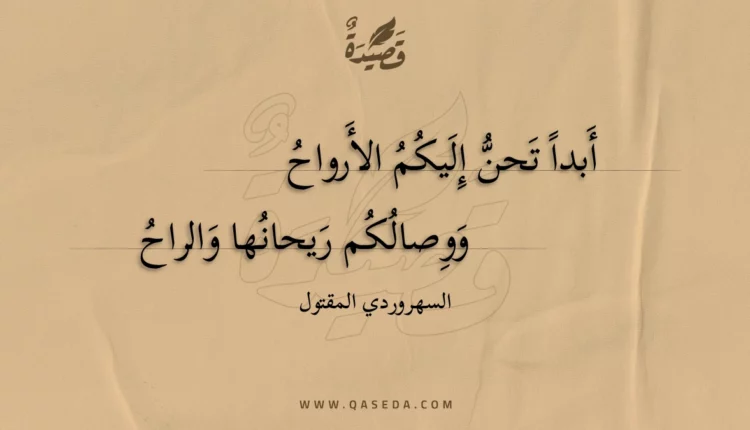 قَصِيدَةٌ
أَبداً تَحنُّ إِلَيكُمُ الأَرواحُ
وَوِصالُكُم رَيحانُها وَالراحُ
السهروردي المقتول
WWW.QASEDA.COM